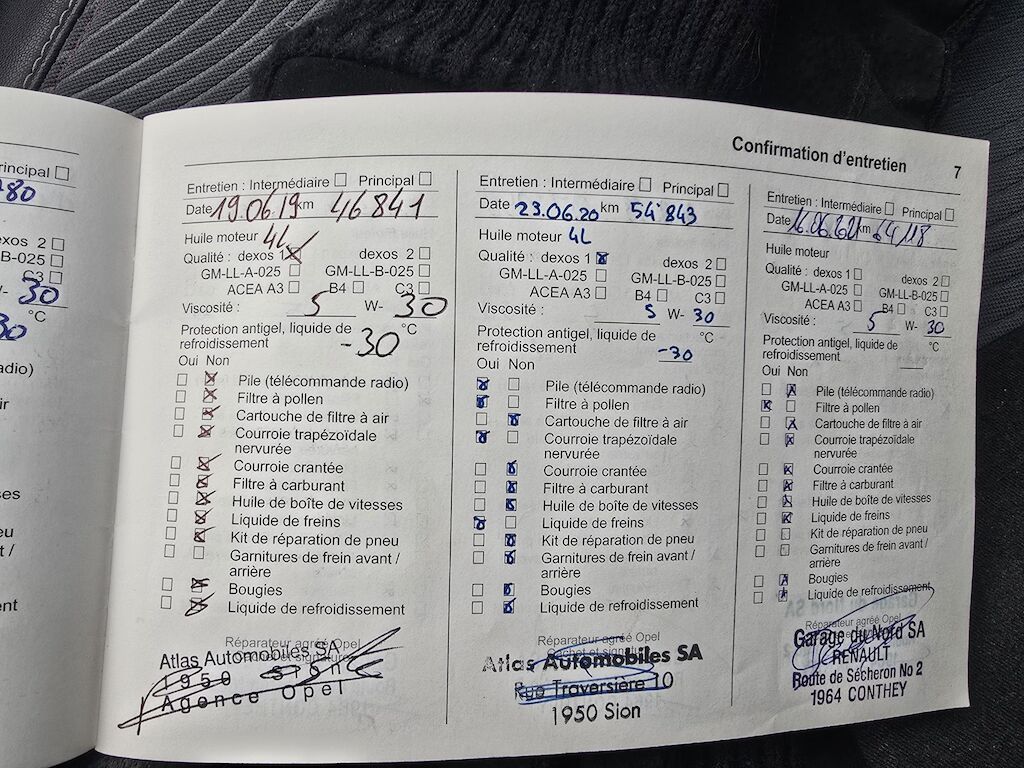 Confirmation d'entretien 7
rincipal
80
dexos 2
B-025
C3
W- 30
°C
30
adio)
ir
es
eu
t /
nt
Entretien : Intermédiaire Principal
Date 19.06.19 km 46841
Huile moteur 4L
Qualité : dexos 1 dexos 2
GM-LL-A-025 GM-LL-B-025
ACEA A3 B4 C3
Viscosité : 5 W- 30
Protection antigel, liquide de
refroidissement -30 °C
Oui Non
Pile (télécommande radio)
Filtre à pollen
Cartouche de filtre à air
Courroie trapézoïdale
nervurée
Courroie crantée
Filtre à carburant
Huile de boîte de vitesses
Liquide de freins
Kit de réparation de pneu
Garnitures de frein avant /
arrière
Bougies
Liquide de refroidissement
Réparateur agréé Opel
Cachet et signature
Atlas Automobiles SA
1950 Sion
Agence Opel
Entretien : Intermédiaire Principal
Date 23.06.20 km 54'843
Huile moteur 4L
Qualité : dexos 1 dexos 2
GM-LL-A-025 GM-LL-B-025
ACEA A3 B4 C3
Viscosité : 5 W- 30
Protection antigel, liquide de °C
refroidissement -30
Oui Non
Pile (télécommande radio)
Filtre à pollen
Cartouche de filtre à air
Courroie trapézoïdale
nervurée
Courroie crantée
Filtre à carburant
Huile de boîte de vitesses
Liquide de freins
Kit de réparation de pneu
Garnitures de frein avant /
arrière
Bougies
Liquide de refroidissement
Réparateur agréé Opel
Cachet et signature
Atlas Automobiles SA
Rue Traversière 10
1950 Sion
Entretien : Intermédiaire Principal
Date km 64118
Huile moteur
Qualité : dexos 1 dexos 2
GM-LL-A-025 GM-LL-B-025
ACEA A3 B4 C3
Viscosité : 5 W- 30
Protection antigel, liquide de
refroidissement °C
Oui Non
Pile (télécommande radio)
Filtre à pollen
Cartouche de filtre à air
Courroie trapézoïdale
nervurée
Courroie crantée
Filtre à carburant
Huile de boîte de vitesses
Liquide de freins
Kit de réparation de pneu
Garnitures de frein avant /
arrière
Bougies
Liquide de refroidissement
Réparateur agréé Opel
Garage du Nord SA
RENAULT
Route de Sécheron No 2
1964 CONTHEY